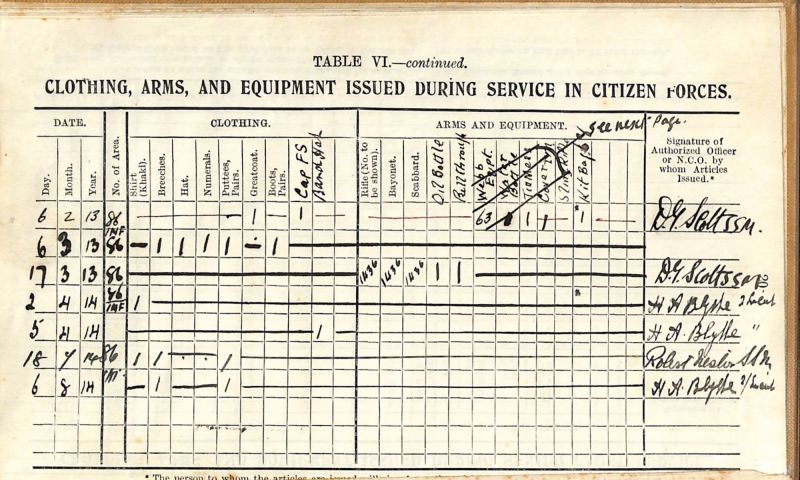 TABLE VI.—continued.
CLOTHING, ARMS, AND EQUIPMENT ISSUED DURING SERVICE IN CITIZEN FORCES.
see next page.
DATE. CLOTHING. ARMS AND EQUIPMENT.
Day. Month. Year. No. of Area. Shirt (Khaki). Breeches. Hat. Numerals. Puttees, Pairs. Greatcoat. Boots, Pairs. Cap FS Band Hat Rifle (No. to be shown). Bayonet. Scabbard. Oil Bottle Pullthrough Webb Eqpt. Water Bottle Kit Bag Signature of Authorized Officer or N.C.O. by whom Articles Issued.*
6 2 13 86 INF — 1 — 63 1 1 1 1 D.G. Scott SSM.
6 3 13 86 — 1 1 1 1 — 1 —
17 3 13 86 — 1436 1436 1436 1 1 — D.G. Scott SSM
2 4 14 86 INF 1 — H A Blythe 2 Lieut
5 4 14 — 1 — H A. Blythe "
18 7 14 86 1 1 — 1 — Robert
6 8 14 " — 1 — 1 — H A. Blythe 2/Lieut
* The person to whom the articles are issued will